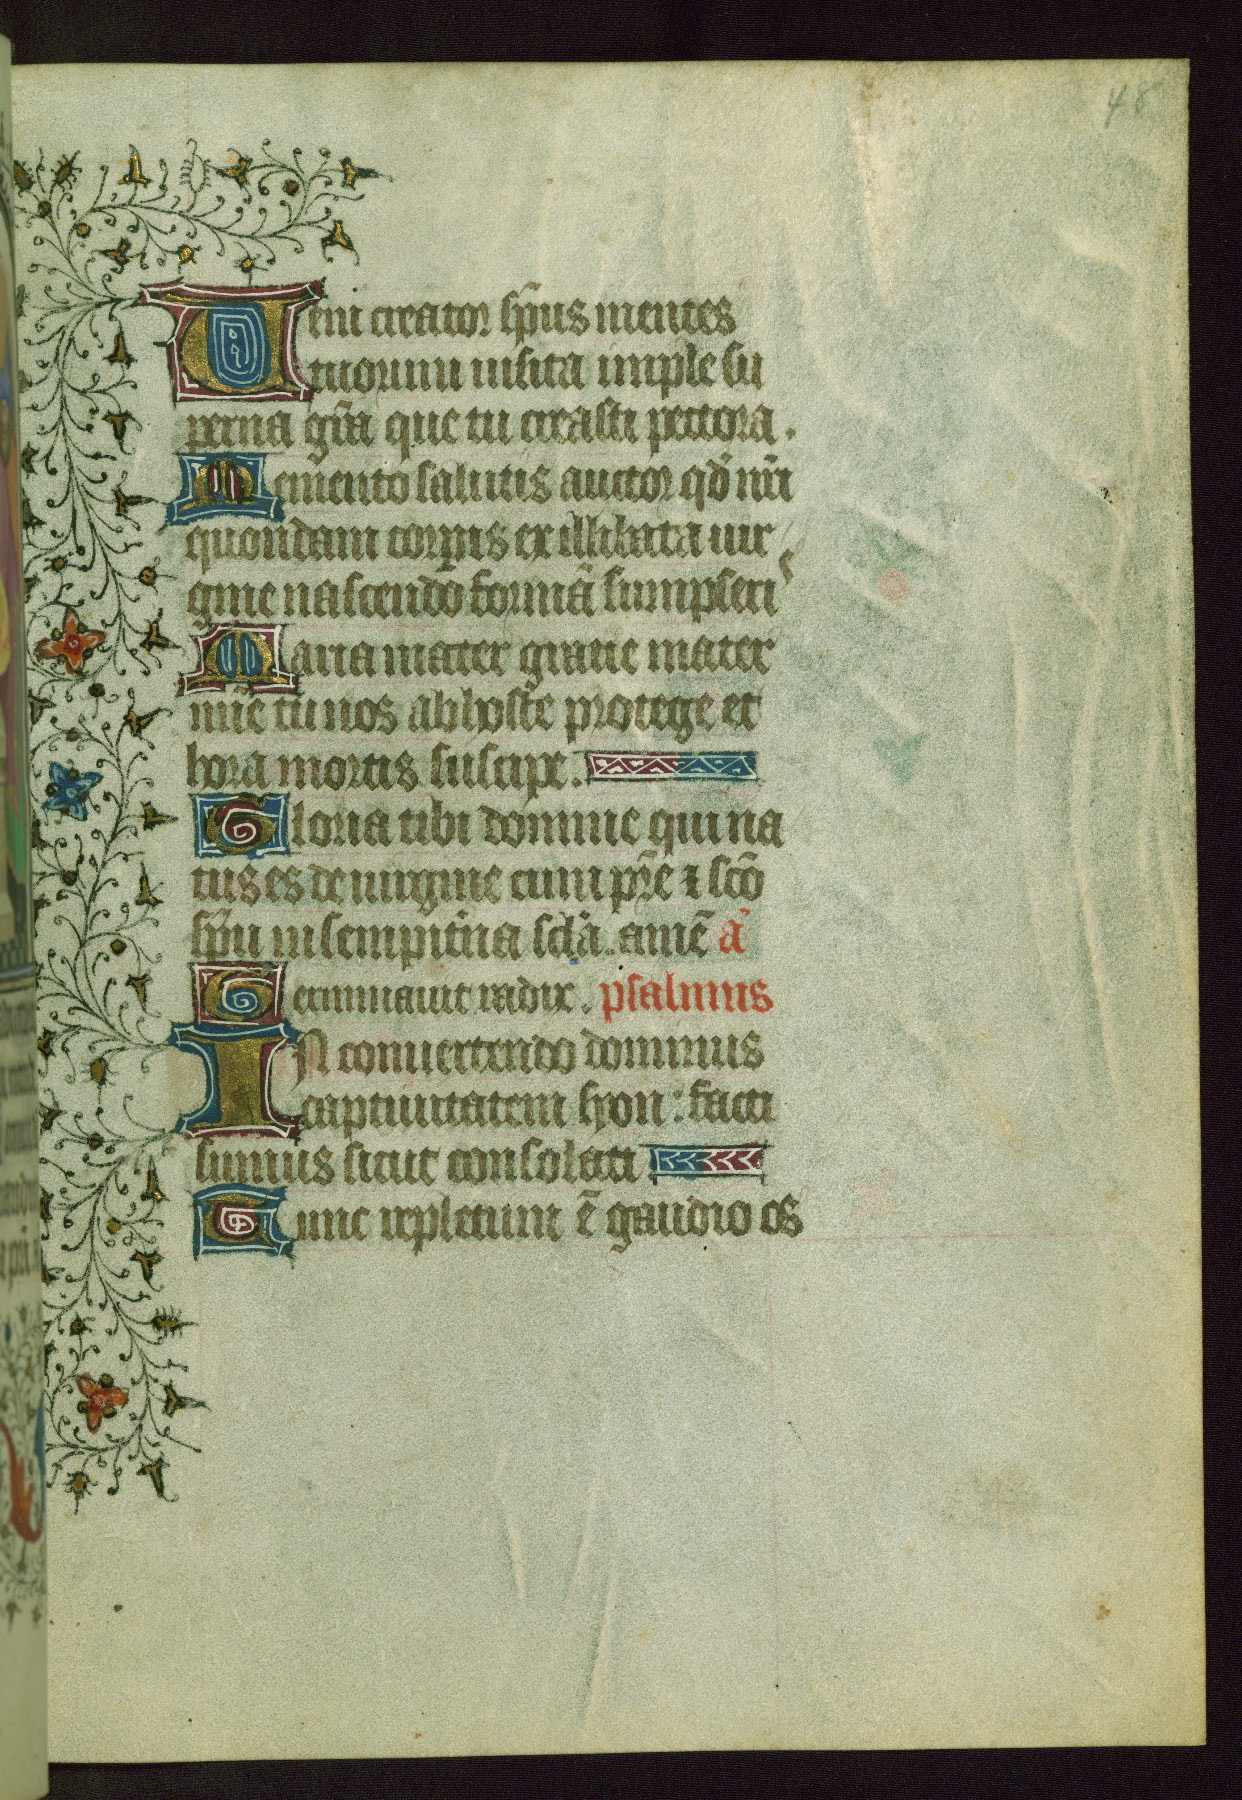 48
Ueni creator sp̄us mentes
tuorum uisita imple su
perna gr̄a que tu creasti pectora.
Memento salutis auctor qd̄ nr̄i
quondam corpis ex illibata uir
gine nascendo formā sumpseri
Maria mater gratie mater
mīe tu nos ab hoste protege et
hora mortis suscipe.
Gloria tibi domine qui na
tus es de uirgine cum pr̄e ⁊ sc̄o
sp̄u in sempit̄na sc̄la. amē a'
Germinauit radix. psalmus
IN conuertendo dominus
captiuitatem syon : facti
sumus sicut consolati
Tunc repletum ē gaudio os